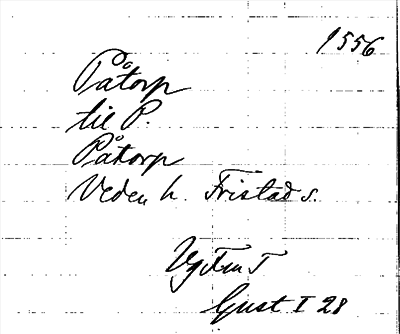 1556
Påtorp
til P.
Påtorp
Veden h. Fristad s.
VgFtn I
Gust I 28